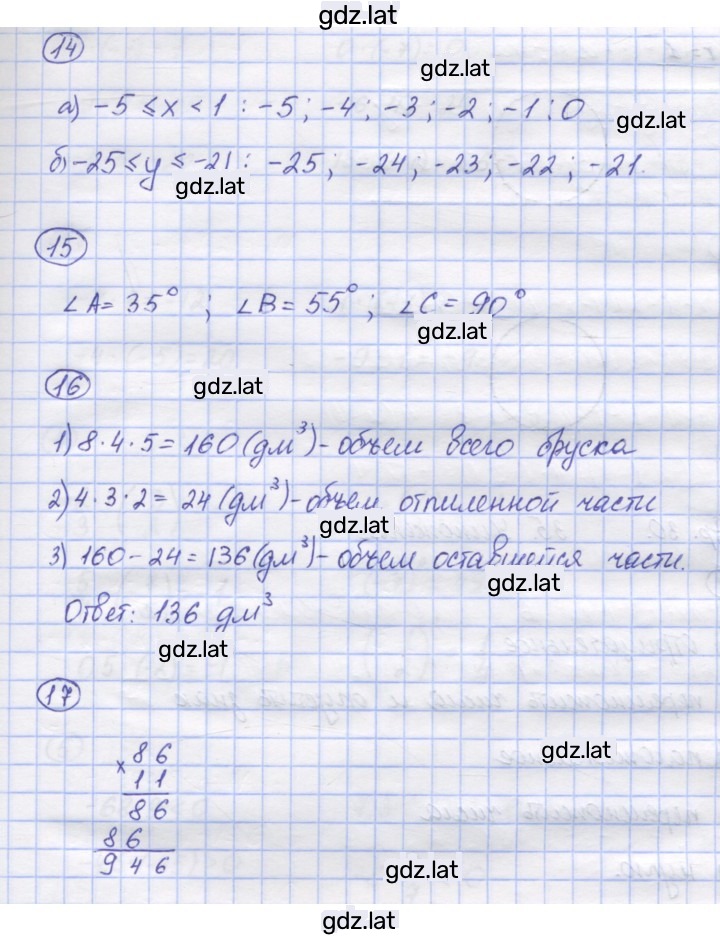 gdz.lat
14
gdz.lat
а) -5 ≤ x < 1 : -5 ; -4 ; -3 ; -2 ; -1 ; 0
gdz.lat
б) -25 ≤ y ≤ -21 : -25 ; -24 ; -23 ; -22 ; -21.
gdz.lat
15
∠A = 35° ; ∠B = 55° ; ∠C = 90°
gdz.lat
16
gdz.lat
1) 8 · 4 · 5 = 160 (дм³) - объем всего бруска
2) 4 · 3 · 2 = 24 (дм³) - объем отпиленной части
gdz.lat
3) 160 - 24 = 136 (дм³) - объем оставшейся части.
gdz.lat
Ответ: 136 дм³
gdz.lat
17
gdz.lat
× 86
11
86
86
946
gdz.lat
gdz.lat